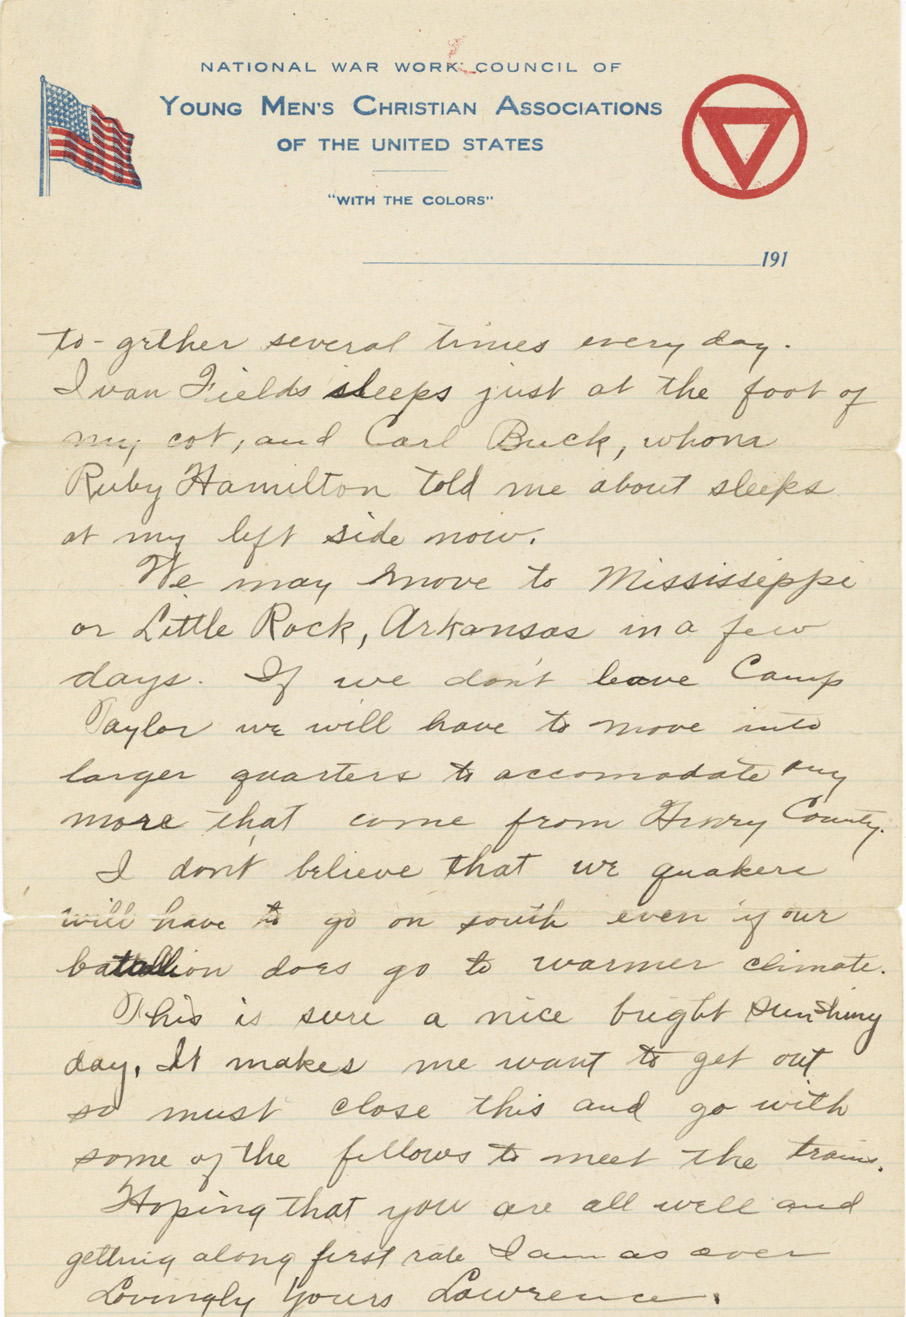 NATIONAL WAR WORK COUNCIL OF
YOUNG MEN'S CHRISTIAN ASSOCIATIONS
OF THE UNITED STATES
"WITH THE COLORS"
191
to-gether several times every day.
Ivan Fields sleeps just at the foot of
my cot, and Carl Buck, whom
Ruby Hamilton told me about sleeps
at my left side now.
We may move to Mississippi
or Little Rock, Arkansas in a few
days. If we don't leave Camp
Taylor we will have to move into
larger quarters to accomodate any
more that come from Henry County.
I don't believe that we quakers
will have to go on south even if our
batallion does go to warmer climate.
This is sure a nice bright sunshiny
day. It makes me want to get out
so must close this and go with
some of the fellows to meet the trains.
Hoping that you are all well and
getting along first rate I am as ever
Lovingly Yours Lawrence.